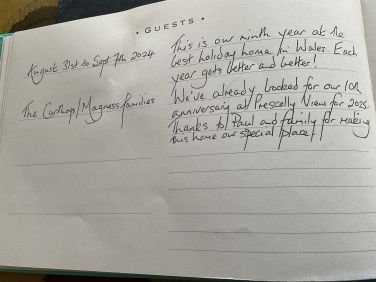 · GUESTS ·
August 31st to Sept 7th 2024
The / Magness families
This is our ninth year at the
best holiday home in Wales. Each
year gets better and better!
We've already booked for our 10th
anniversary at Prescelly View for 2025.
Thanks to Paul and family for making
this home our special place!